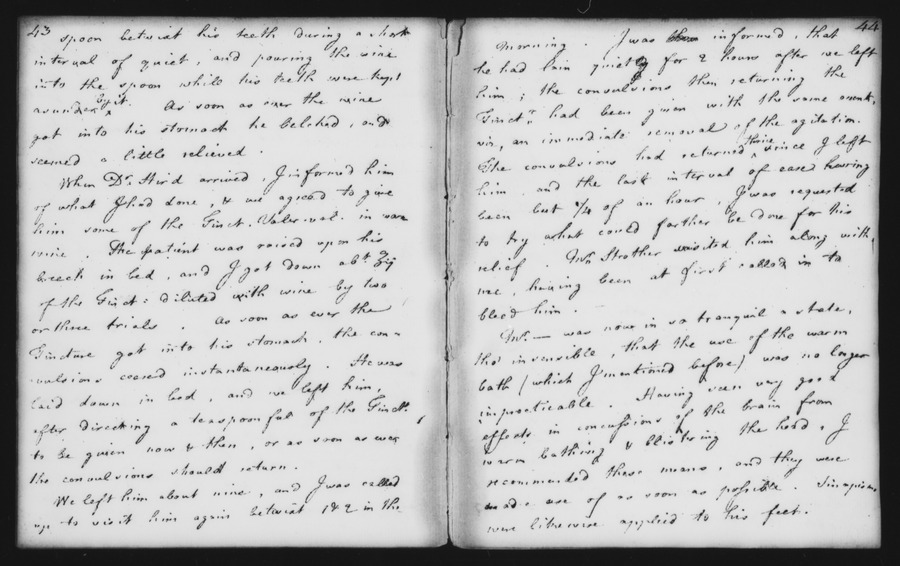 43
spoon betwixt his teeth during a short
interval of quiet, and pouring the wine
into the spoon while his teeth were kept
asunder by it. As soon as ever the wine
got into his stomach he belched, and
seemed a little relieved.
When Dr. Hird arrived, I informed him
of what I had done, & we agreed to give
him some of the Tinct. Valer. vol. in warm
wine. The patient was raised upon his
breech in bed, and I got down abt. Ʒij
of the Tinct: diluted with wine by two
or three trials. As soon as ever the
Tincture got into his stomach, the con-
vulsions ceased instantaneously. He was
laid down in bed, and we left him,
after directing a teaspoonful of the Tinct.
to be given now & then, or as soon as ever
the convulsions should return.
We left him about nine, and I was called
up to visit him again betwixt 1 & 2 in the
44
morning. I was informed, that
he had lain quiet for 2 hours after we left
him; the convulsions then returning the
Tinct. had been given with the same
an immediate removal of the agitation.
The convulsions had returned thrice since I left
him, and the last interval of ease having
been but 3/4 of an hour, I was requested
to try what could farther be done for his
relief. Mr. Strother visited him along with
me, having been at first called in to
bleed him.
Mr. — was now in so tranquil a state,
tho' insensible, that the use of the warm
bath (which I mentioned before) was no longer
impracticable. Having seen very good
effects in concussions of the brain from
warm bathing & blistering the head, I
recommended these means, and they were
made use of as soon as possible. Sinapisms
were likewise applied to his feet.